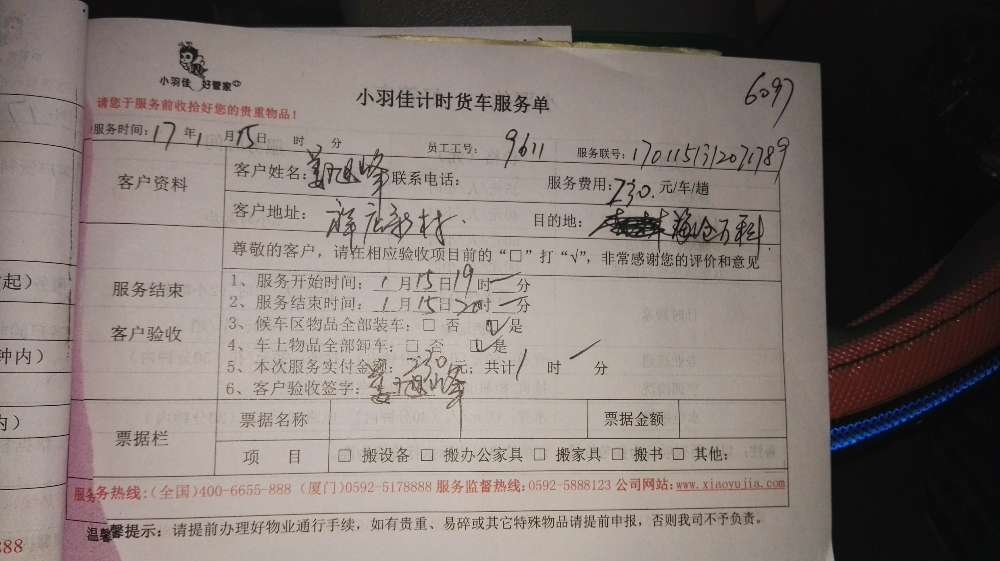 小羽佳 好管家
小羽佳计时货车服务单
6097
请您于服务前收拾好您的贵重物品！
服务时间：17年1月15日 时 分 员工工号：9611 服务联号：
客户资料
客户姓名：姜旭峰 联系电话： 服务费用：230.元/车/趟
客户地址： 目的地：
服务结束
客户验收
尊敬的客户，请在相应验收项目前的“□”打“√”，非常感谢您的评价和意见
1、服务开始时间：1月15日19时一分
2、服务结束时间：1月15日20时一分
3、候车区物品全部装车：□ 否 ☑是
4、车上物品全部卸车：□ 否 ☑是
5、本次服务实付金额：230元；共计1 时 一 分
6、客户验收签字：姜旭峰
票据栏
票据名称 票据金额
项 目 □ 搬设备 □ 搬办公家具 □ 搬家具 □ 搬书 □ 其他：
服务热线：(全国)400-6655-888 (厦门)0592-5178888 服务监督热线：0592-5888123 公司网站：www.xiaoyujia.com
温馨提示：请提前办理好物业通行手续，如有贵重、易碎或其它特殊物品请提前申报，否则我司不予负责。
起）
种内）
内）
888